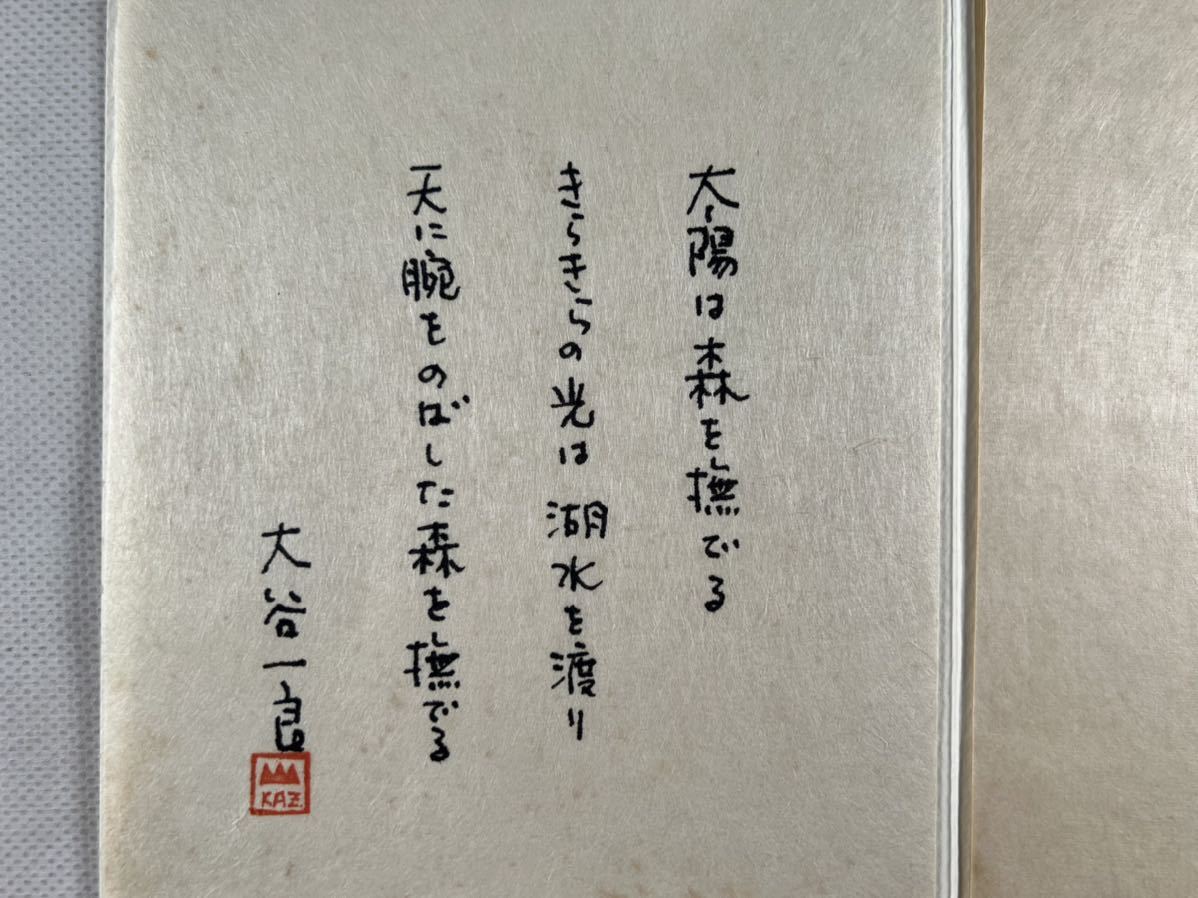 太陽は森を撫でる
きらきらの光は湖水を渡り
天に腕をのばした森を撫でる
大谷一良
KAZ.